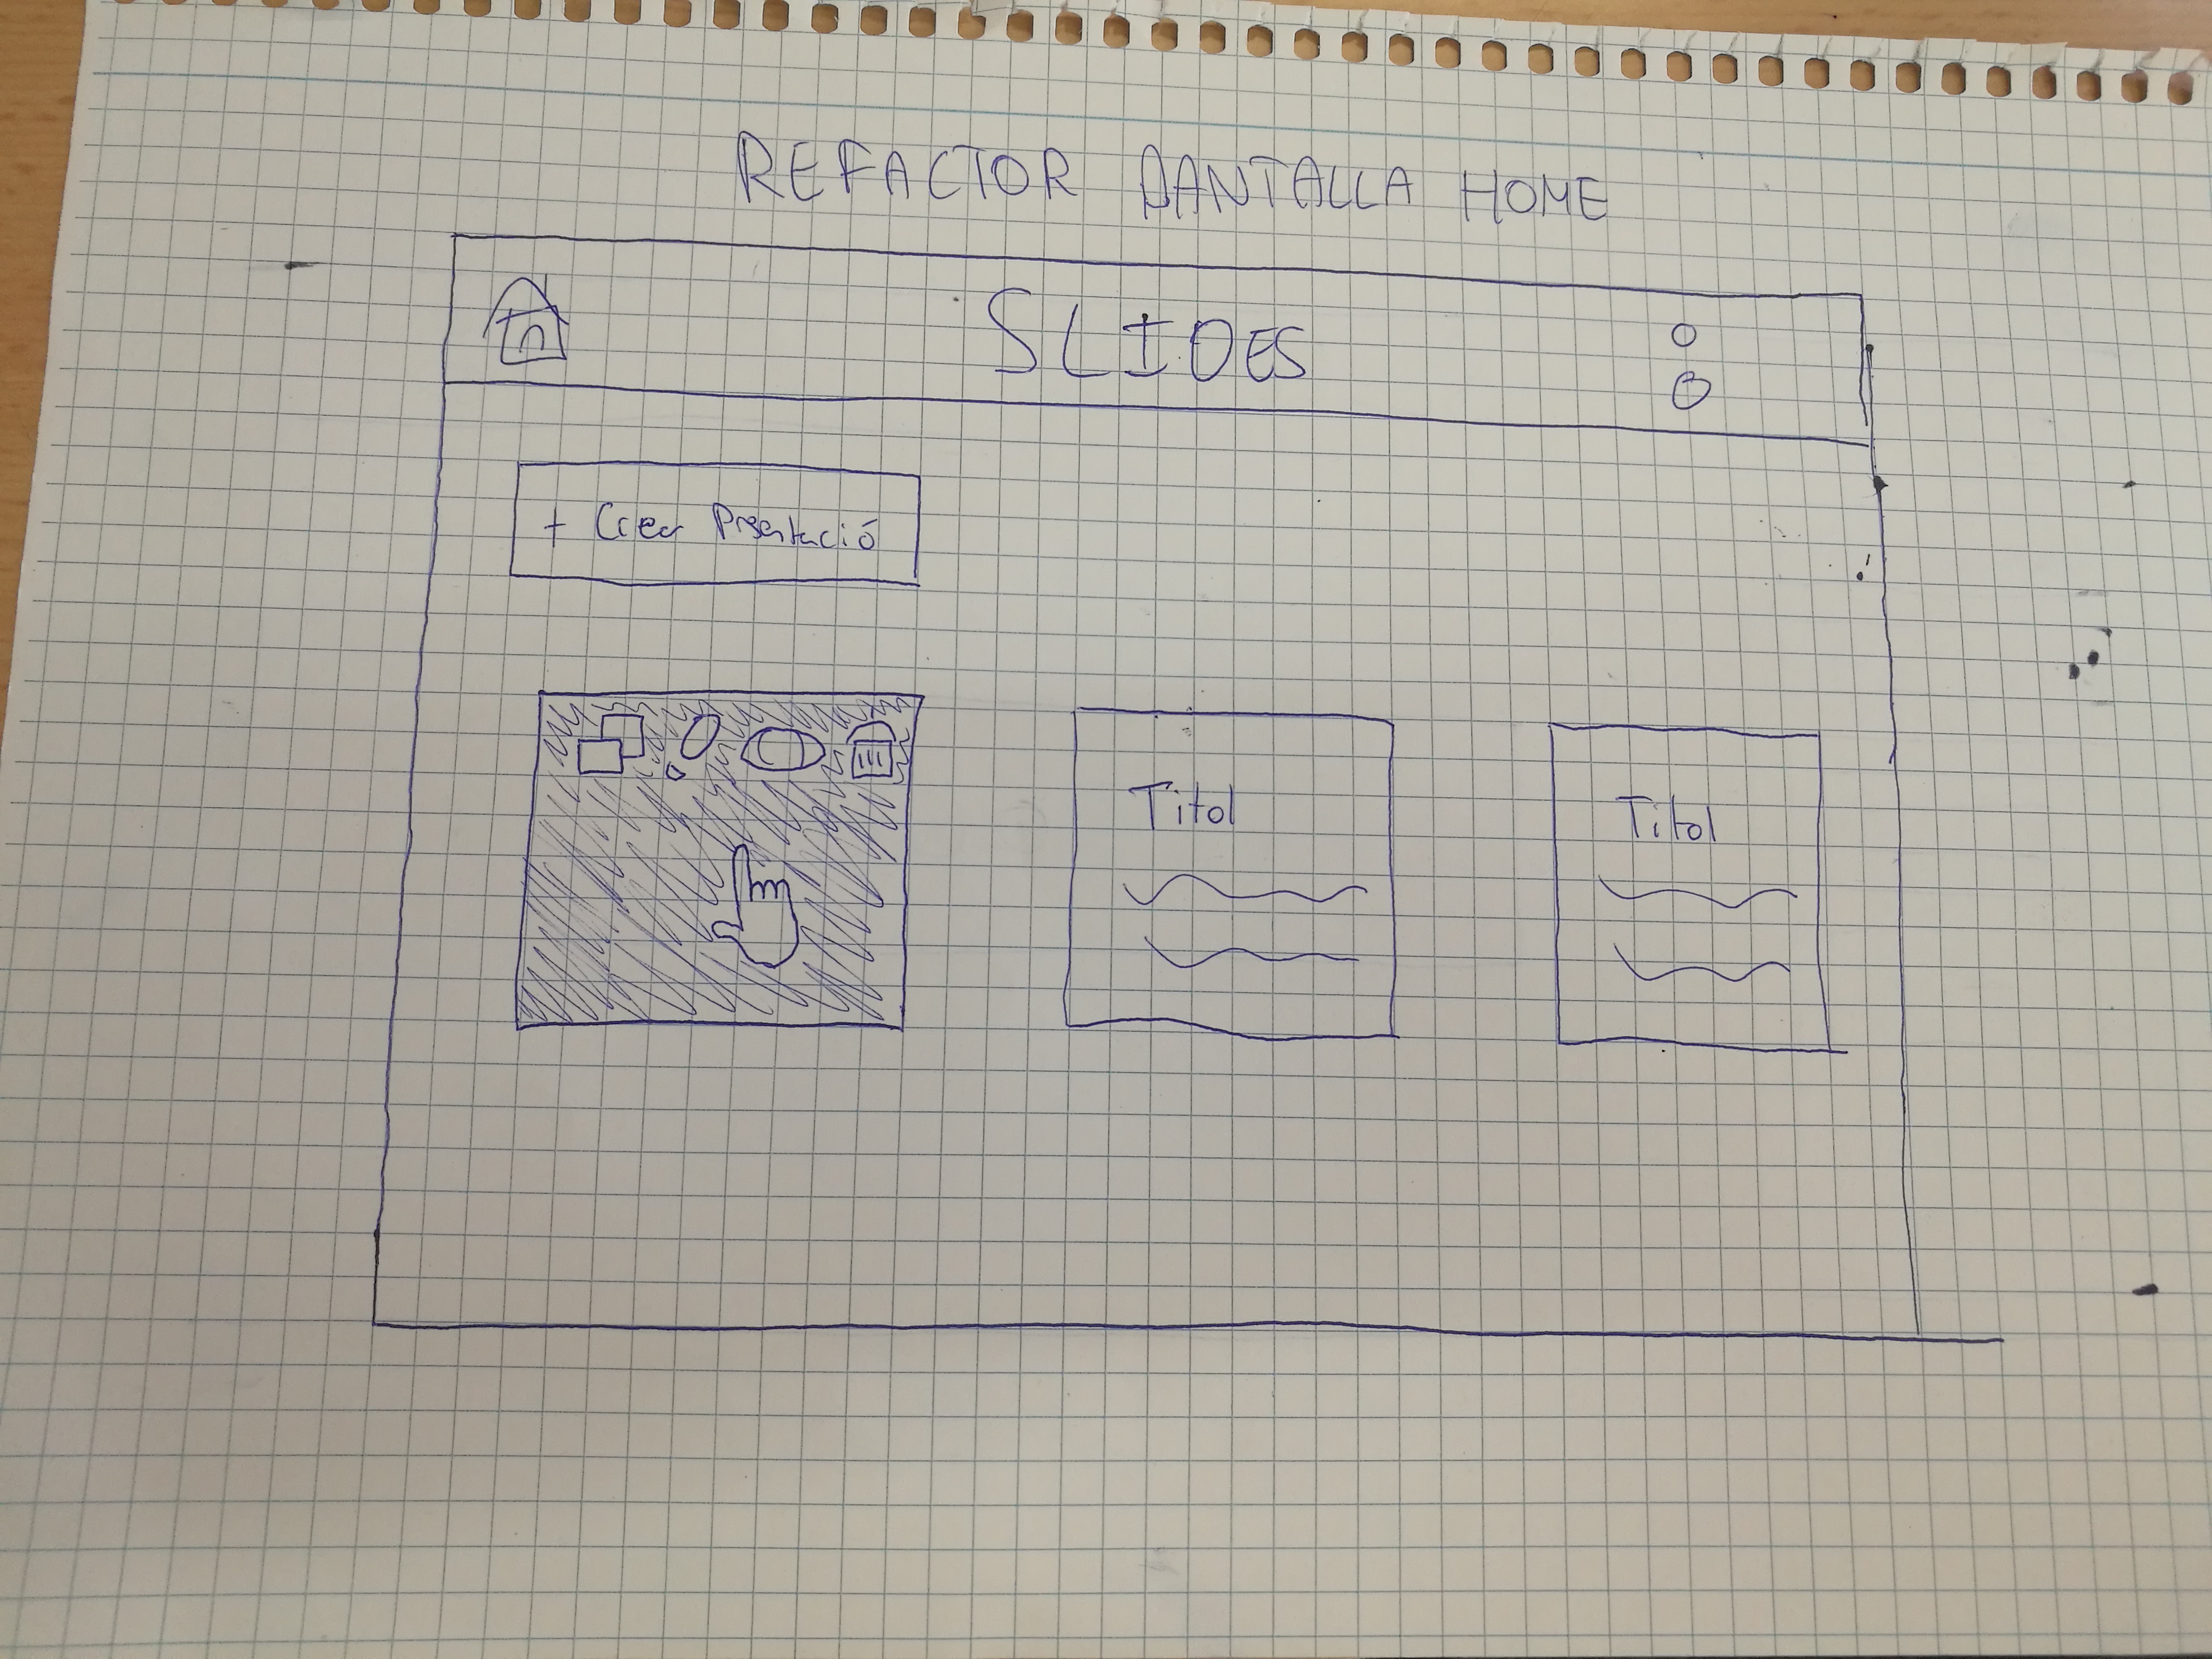 REFACTOR PANTALLA HOME
SLIDES
+ Crear Presentació
Titol
Titol